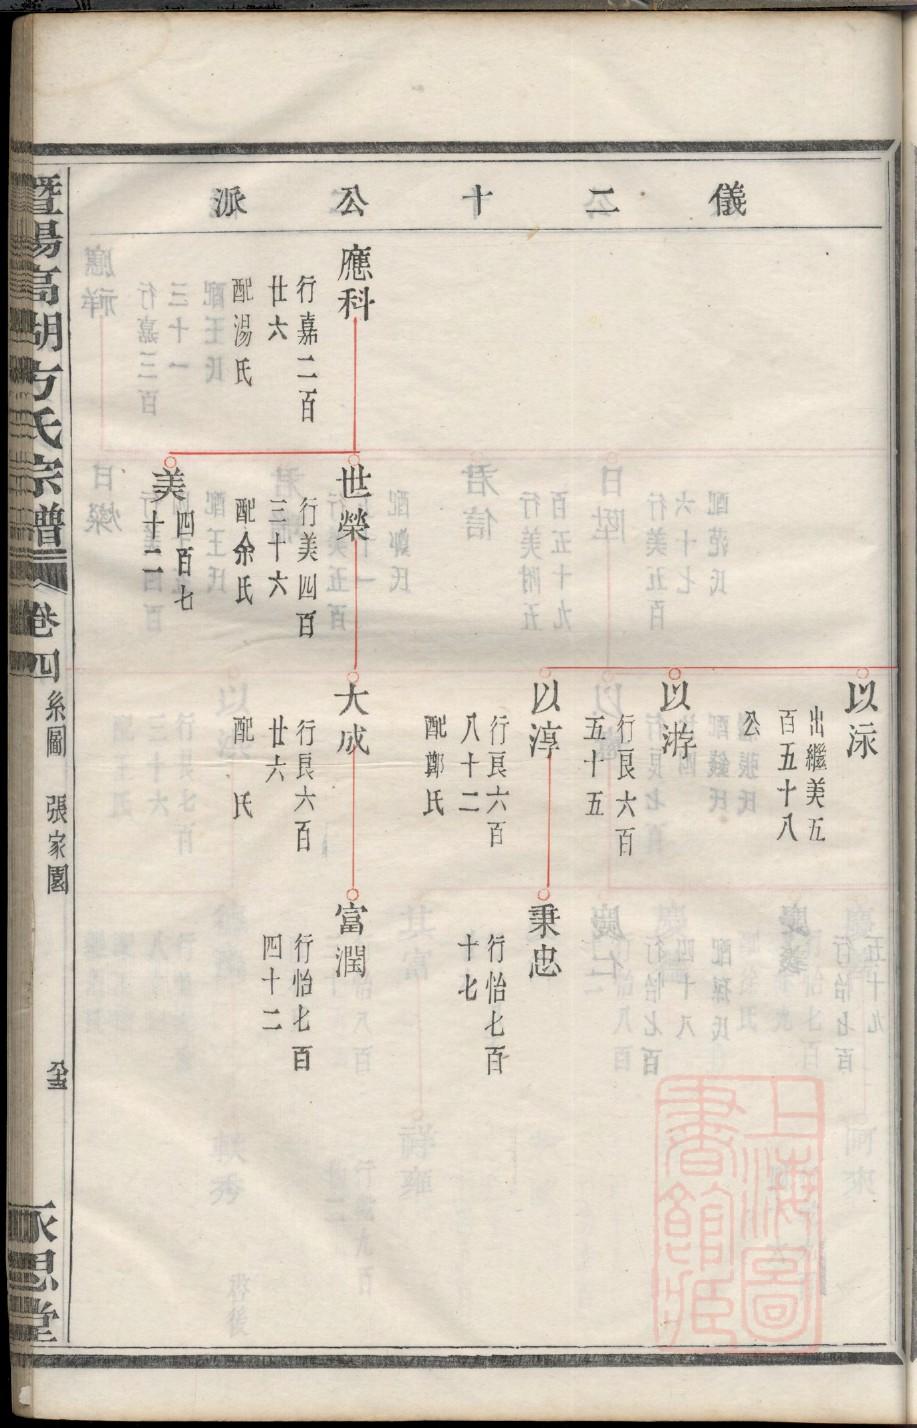 儀二十公派
以泳
出繼美五
百五十八
公
以游
行良六百
五十五
以淳
行良六百
八十二
配鄭氏
秉忠
行怡七百
十七
應科
行嘉二百
廿六
配湯氏
世榮
行美四百
三十六
配余氏
大成
行良六百
廿六
配 氏
富潤
行怡七百
四十二
美
四百七
十二
暨陽高湖方氏宗譜
卷四
系圖 張家園
永思堂
上海圖書館藏